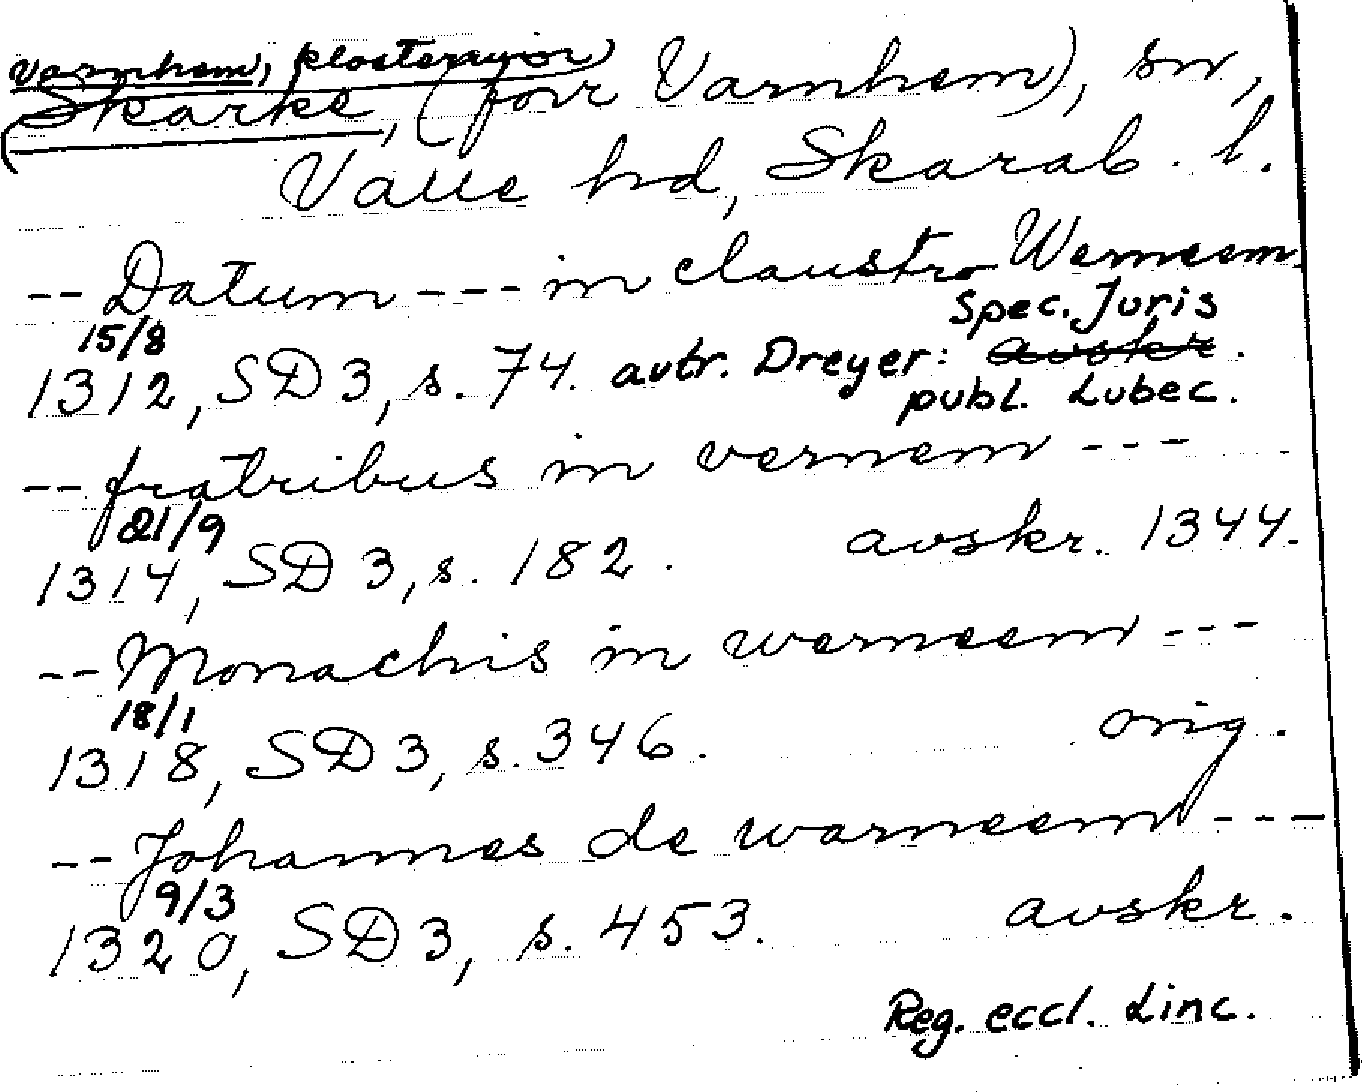 Varnhem, klosterruin
(Skarke, (förr Varnhem), sn,
Valle hd, Skarab. l.
-- Datum --- in claustro Werneem
15/8 Spec. Juris
1312, SD 3, s. 74. avtr. Dreyer: avskr.
publ. Lubec.
-- fratribus in vernem ---
21/9
1314, SD 3, s. 182. avskr. 1344.
-- Monachis in werneem ---
18/1
1318, SD 3, s. 346. orig.
-- Johannes de warneem ---
9/3
1320, SD 3, s. 453. avskr.
Reg. eccl. Linc.